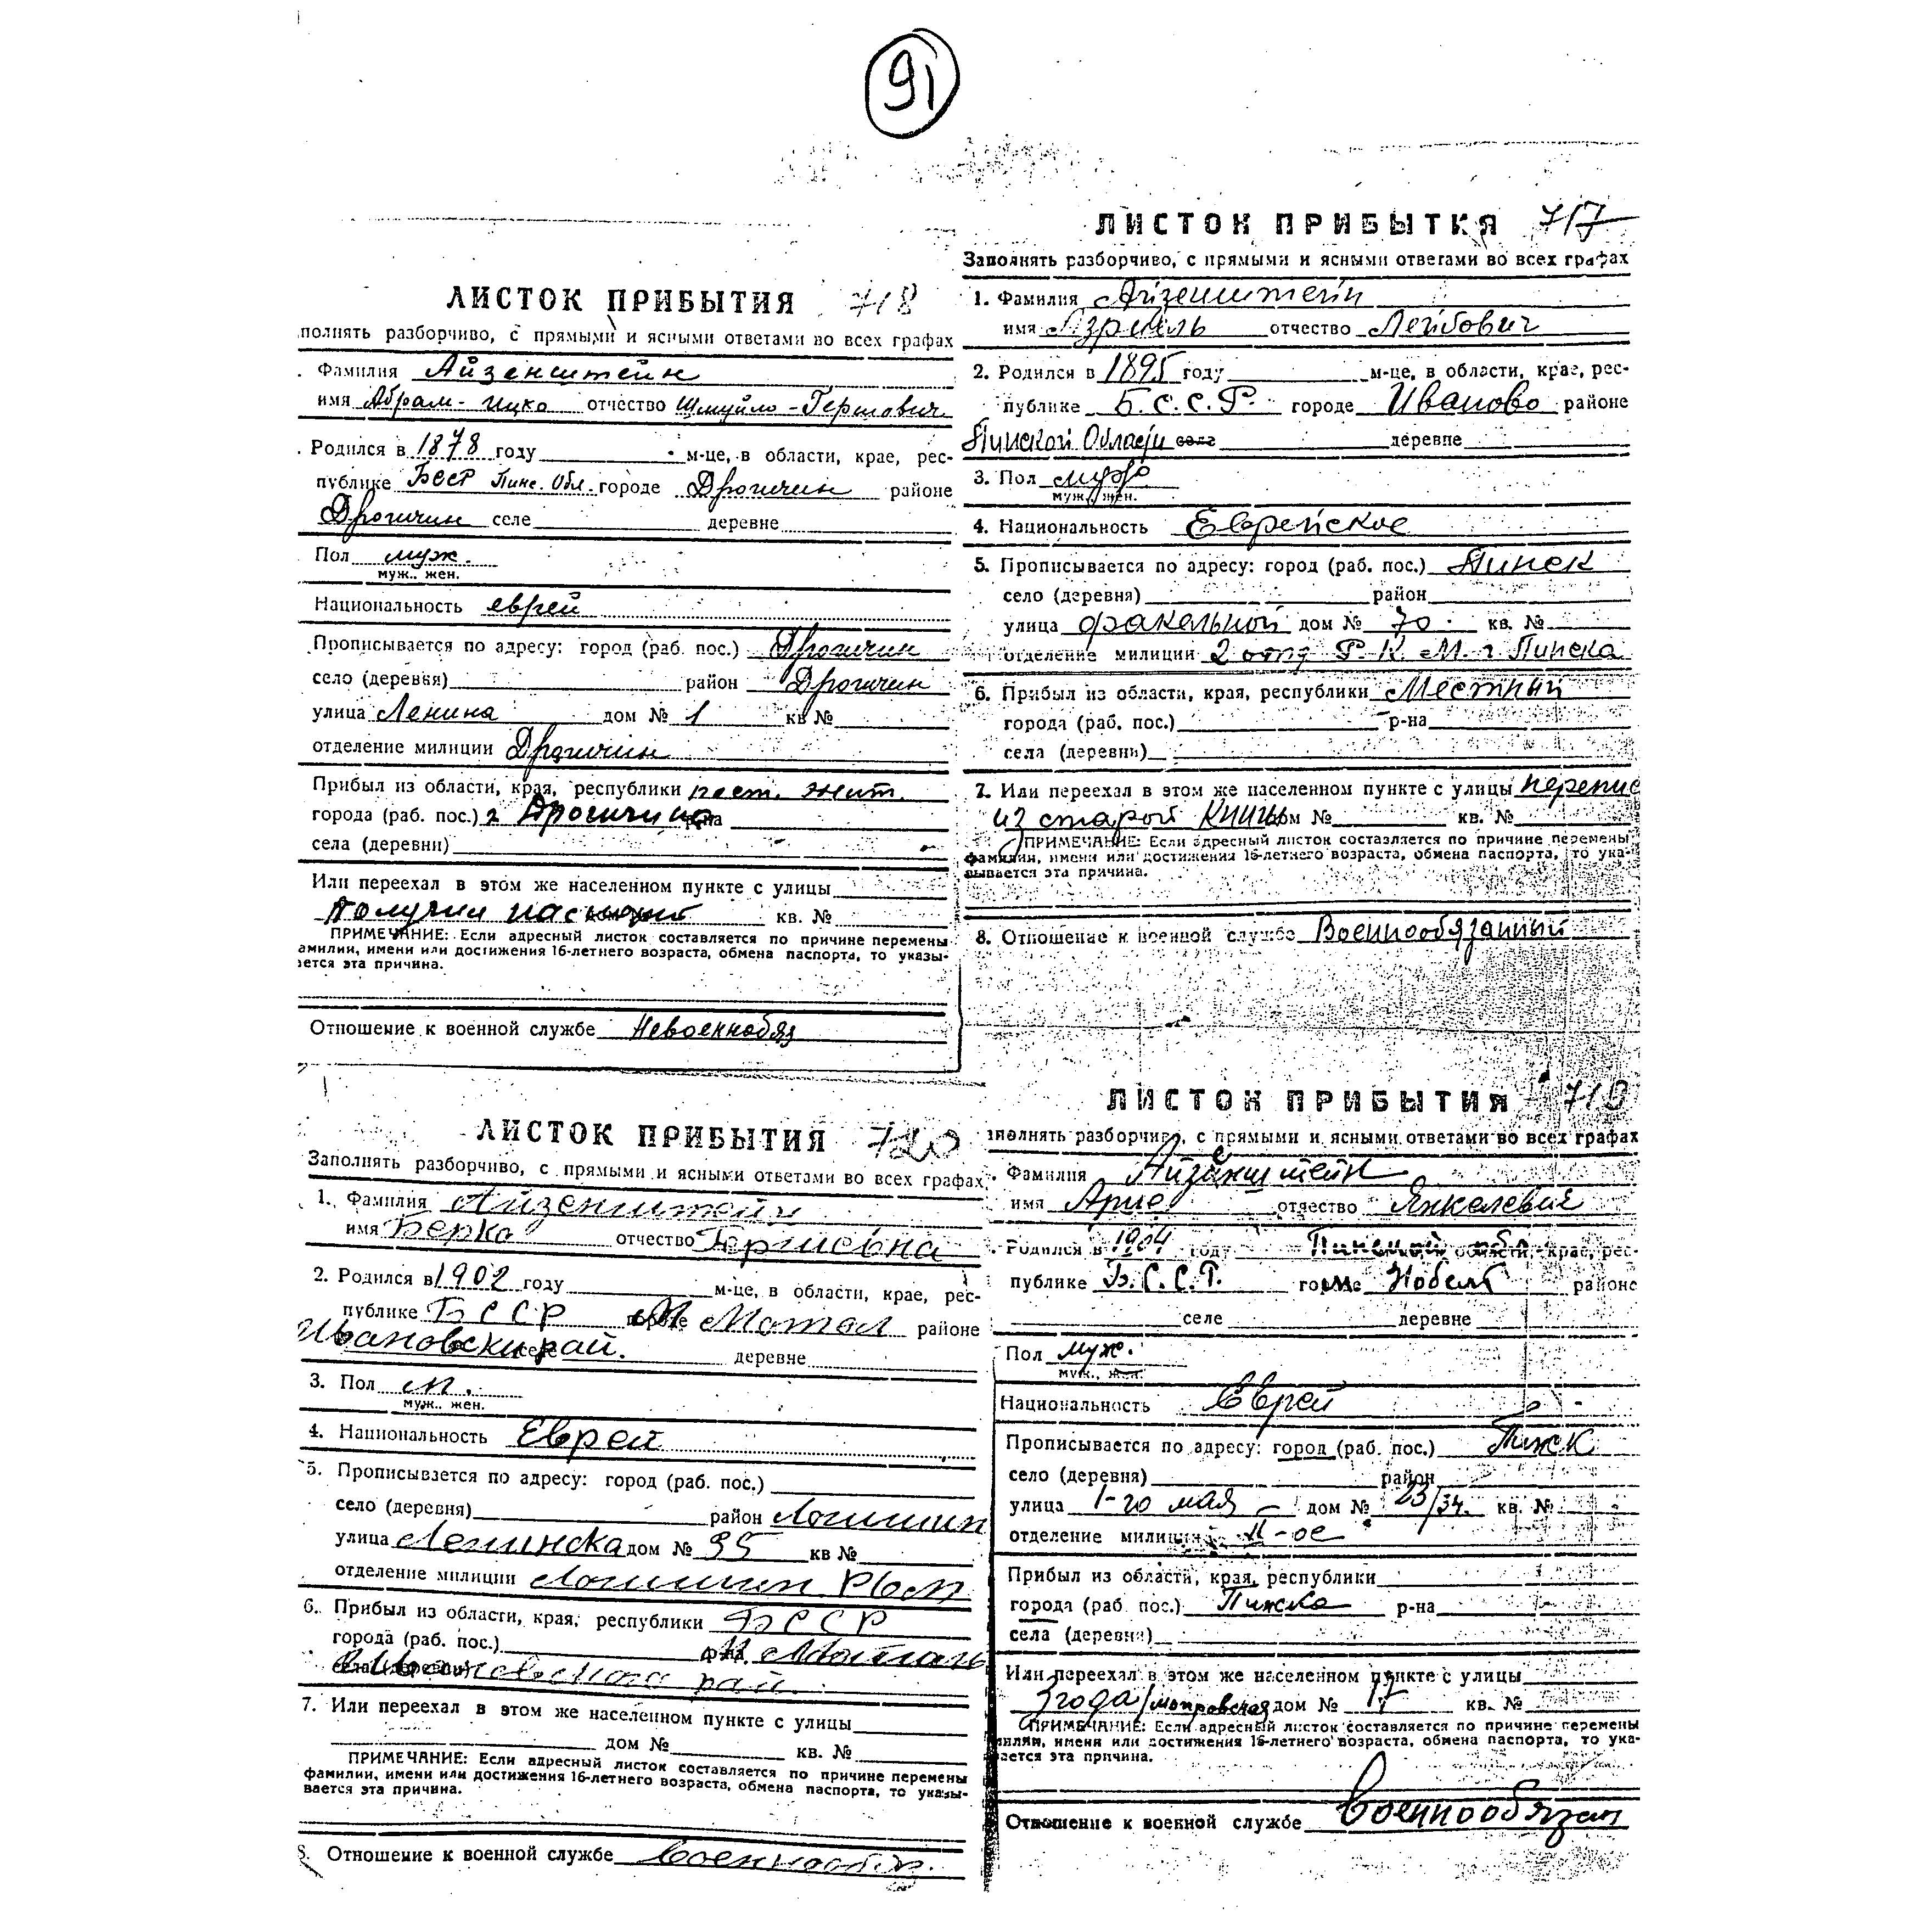 91
ЛИСТОК ПРИБЫТИЯ 718
полнять разборчиво, с прямыми и ясными ответами во всех графах
. Фамилия Айзенштейн
имя Абрам-Ицко отчество Шмуйло-Гершович
. Родился в 1878 году м-це, в области, крае, рес-
публике БССР Пинс. Обл. городе Дрогичин районе
Дрогичин селе деревне
Пол муж.
муж., жен.
Национальность еврей
Прописывается по адресу: город (раб. пос.) Дрогичин
село (деревня) район Дрогичин
улица Ленина дом № 1 кв №
отделение милиции Дрогичин
Прибыл из области, края, республики пост. жит.
города (раб. пос.) г Дрогичина р-на
села (деревни)
Или переехал в этом же населенном пункте с улицы
Получил паспорт кв. №
ПРИМЕЧАНИЕ: Если адресный листок составляется по причине перемены
амилии, имени или достижения 16-летнего возраста, обмена паспорта, то указы-
ается эта причина.
Отношение к военной службе Невоеннобяз
ЛИСТОК ПРИБЫТКЯ 717
Заполнять разборчиво, с прямыми и ясными ответами во всех графах
1. Фамилия Айзенштейн
имя Азриель отчество Лейбович
2. Родился в 1895 году м-це, в области, крае, рес-
публике Б.С.С.Р. городе Иваново районе
Пинской Области селе деревне
3. Пол муж
муж., жен.
4. Национальность Еврейское
5. Прописывается по адресу: город (раб. пос.) Пинск
село (деревня) район
улица факельной дом № 70. кв. №
отделение милиции 2 отд Р.К.М. г. Пинска
6. Прибыл из области, края, республики Местный
города (раб. пос.) р-на
села (деревни)
7. Или переехал в этом же населенном пункте с улицы перепис
из старой Книги дом № кв. №
ПРИМЕЧАНИЕ: Если адресный листок составляется по причине перемены
фамилии, имени или достижения 16-летнего возраста, обмена паспорта, то ука-
зывается эта причина.
8. Отношение к военной службе Военнообязанный
ЛИСТОК ПРИБЫТИЯ 720
Заполнять разборчиво, с прямыми и ясными ответами во всех графах
1. Фамилия Айзенштейн
имя Берко отчество
2. Родился в 1902 году м-це, в области, крае, рес-
публике БССР городе м Мотол районе
Ивановски рай. селе деревне
3. Пол м.
муж.. жен.
4. Национальность Еврей
5. Прописывается по адресу: город (раб. пос.)
село (деревня) район Логишин
улица Ленинска дом № 35 кв №
отделение милиции Логишин
6. Прибыл из области, края, республики БССР
города (раб. пос.) р-на м Мотоль
села (деревни) Ивановского рай.
7. Или переехал в этом же населенном пункте с улицы
дом № кв. №
ПРИМЕЧАНИЕ: Если адресный листок составляется по причине перемены
фамилии, имени или достижения 16-летнего возраста, обмена паспорта, то указы-
вается эта причина.
8. Отношение к военной службе военнообяз.
ЛИСТОК ПРИБЫТИЯ 719
аполнять разборчиво, с прямыми и ясными ответами во всех графах
. Фамилия Айзенштейн
имя Арие отчество Янкелевич
. Родился в 1904 году Пинской обл. области, крае, рес-
публике Б.С.С.Р. городе Нобель районе
селе деревне
Пол муж.
муж., жен.
Национальность Еврей
Прописывается по адресу: город (раб. пос.) Пинск
село (деревня) район
улица 1-го мая дом № 23/34. кв. №
отделение милиции II-ое
Прибыл из области, края, республики
города (раб. пос.) Пинска р-на
села (деревни)
Или переехал в этом же населенном пункте с улицы
3 года/мопровская дом № 17 кв. №
ПРИМЕЧАНИЕ: Если адресный листок составляется по причине перемены
милии, имени или достижения 16-летнего возраста, обмена паспорта, то ука-
зается эта причина.
Отношение к военной службе Военнообязан